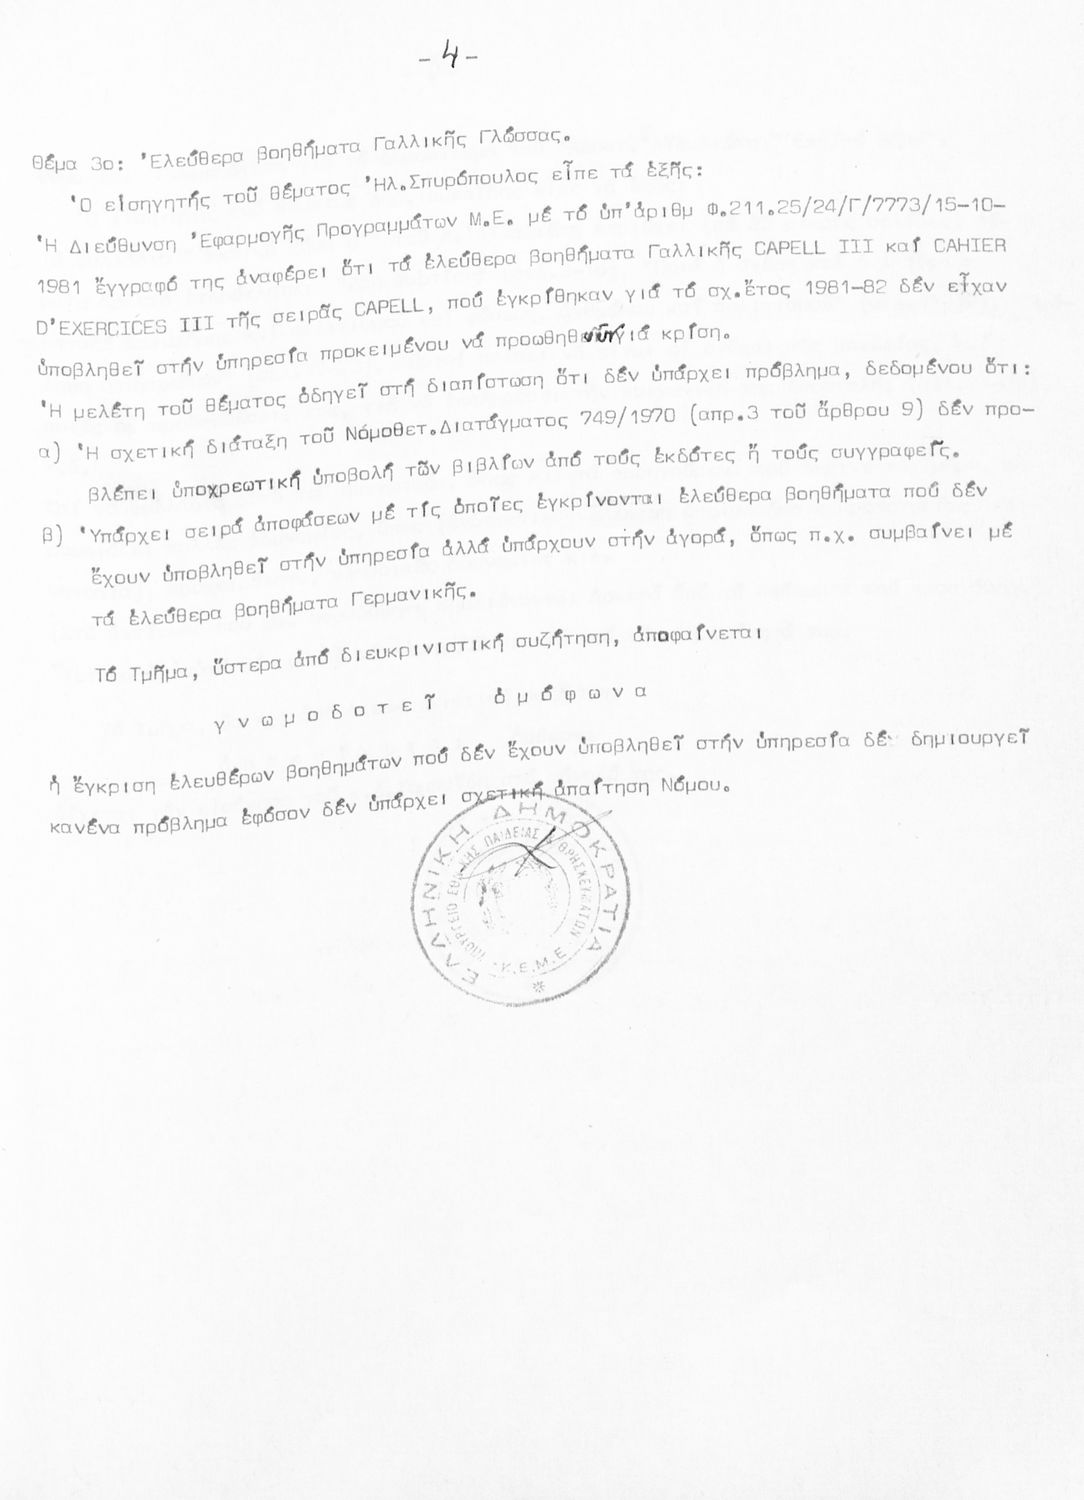 - 4 -
Θέμα 3ο: Ἐλεύθερα βοηθήματα Γαλλικῆς Γλώσσας.
Ὁ εἰσηγητής τοῦ θέματος Ἠλ.Σπυρόπουλος εἶπε τά ἑξῆς:
Ἡ Διεύθυνση Ἐφαρμογῆς Προγραμμάτων Μ.Ε. μέ τό ὑπ'ἀριθμ Φ.211.25/24/Γ/7773/15-10-
1981 ἔγγραφό της ἀναφέρει ὅτι τά ἐλεύθερα βοηθήματα Γαλλικῆς CAPELL III καί CAHIER
D'EXERCICES III τῆς σειρᾶς CAPELL, πού ἐγκρίθηκαν γιά τό σχ.ἔτος 1981-82 δέν εἶχαν
ὑποβληθεῖ στήν ὑπηρεσία προκειμένου νά προωθηθοῦν γιά κρίση.
Ἡ μελέτη τοῦ θέματος ὁδηγεῖ στή διαπίστωση ὅτι δέν ὑπάρχει πρόβλημα, δεδομένου ὅτι:
α) Ἡ σχετική διάταξη τοῦ Νόμοθετ.Διατάγματος 749/1970 (απρ.3 τοῦ ἄρθρου 9) δέν προ-
βλέπει ὑποχρεωτική ὑποβολή τῶν βιβλίων ἀπό τούς ἐκδότες ἤ τούς συγγραφεῖς.
β) Ὑπάρχει σειρά ἀποφάσεων μέ τίς ὁποῖες ἐγκρίνονται ἐλεύθερα βοηθήματα πού δέν
ἔχουν ὑποβληθεῖ στήν ὑπηρεσία ἀλλά ὑπάρχουν στήν ἀγορά, ὅπως π.χ. συμβαίνει μέ
τά ἐλεύθερα βοηθήματα Γερμανικῆς.
Τό Τμῆμα, ὕστερα ἀπό διευκρινιστική συζήτηση, ἀποφαίνεται
γ ν ω μ ο δ ο τ ε ῖ ὁ μ ό φ ω ν α
ἡ ἔγκριση ἐλευθέρων βοηθημάτων πού δέν ἔχουν ὑποβληθεῖ στήν ὑπηρεσία δέ δημιουργεῖ
κανένα πρόβλημα ἐφόσον δέν ὑπάρχει σχετική ἀπαίτηση Νόμου.
ΕΛΛΗΝΙΚΗ ΔΗΜΟΚΡΑΤΙΑ
ΥΠΟΥΡΓΕΙΟ ΕΘΝΙΚΗΣ ΠΑΙΔΕΙΑΣ & ΘΡΗΣΚΕΥΜΑΤΩΝ
Κ.Ε.Μ.Ε.